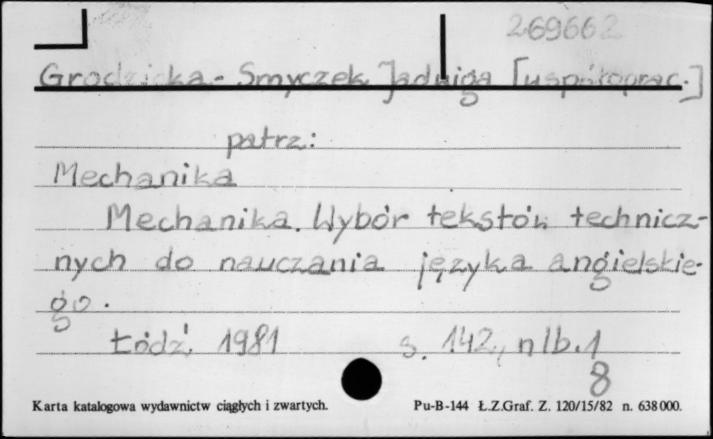 269662
Grodzicka-Smyczek Jadwiga [współoprac.]
patrz:
Mechanika
Mechanika. Wybór tekstów technicz-
nych do nauczania języka angielskie-
go.
Łódź 1981 s. 142, nlb. 1
8
Karta katalogowa wydawnictw ciągłych i zwartych. Pu-B-144 Ł.Z.Graf. Z. 120/15/82 n. 638000.